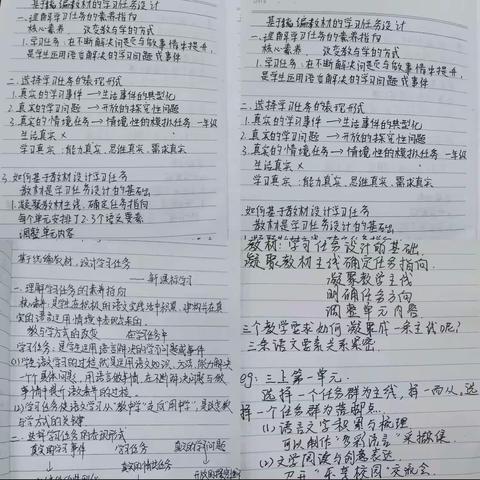 基于统编教材的学习任务设计
一.理解学习任务的素养指向
核心素养 改变教与学的方式
1.学习任务:在不断解决问题与做事情中提升,
是学生运用语言解决的学习问题或事件
二.选择学习任务的表现形式
1.真实的学习事件 → 生活事件的典型化
2.真实的学习问题 → 开放的探究性问题
3.真实的情境任务 → 情境性的模拟任务 一年级
生活真实 ×
学习真实:能力真实、思维真实、需求真实
3.如何基于教材设计学习任务
教材是学习任务设计的基础
1.凝聚教材主线,确定任务指向
每个单元安排了2-3个语文要素
调整单元内容
基于统编教材的学习任务设计
一.理解学习任务的素养指向
核心素养 改变教与学的方式
1.学习任务:在不断解决问题与做事情中提升,
是学生运用语言解决的学习问题或事件
二.选择学习任务的表现形式
1.真实的学习事件 → 生活事件的典型化
2.真实的学习问题 → 开放的探究性问题
3.真实的情境任务 → 情境性的模拟任务 一年级
生活真实 ×
学习真实:能力真实、思维真实、需求真实
如何基于教材设计学习任务
教材是学习任务设计的基础
基于统编教材,设计学习任务
——新课标学习
一.理解学习任务的素养指向
核心素养:是学生在积极的语文实践活动中积累、建构并在真
实的语言运用情境中表现出来的.
教与学方式的改变 在学习任务中
学习任务:是学生运用语言解决的学习问题或事件
(1)学生语文学习的过程,就是运用语文知识、方法、能力解决
一个个具体问题,用语言做事情,在不断解决问题与做
事情中提升语文素养的过程.
(2)学习任务使语文学习从“教中学”走向“用中学”,是改变教
与学方式的关键
二.选择学习任务的表现形式
真实的学习事件 学习任务 真实的学习问题
真实的情境任务
教材:学习任务设计的基础.
凝聚教材主线确定任务指向.
凝聚教学主线
明确任务方向
调整单元内容
三个教学要求如何凝聚成一条主线呢?
三条语文要素关系紧密.
eg:三上第一单元.
选择一个任务群为主线,择一而从,选
择一个任务群为落脚点.
(1)语言文字积累与梳理
可以制作“多彩语言”采撷集
(2)文学阅读与创意表达
召开“乐享校园”交流会.